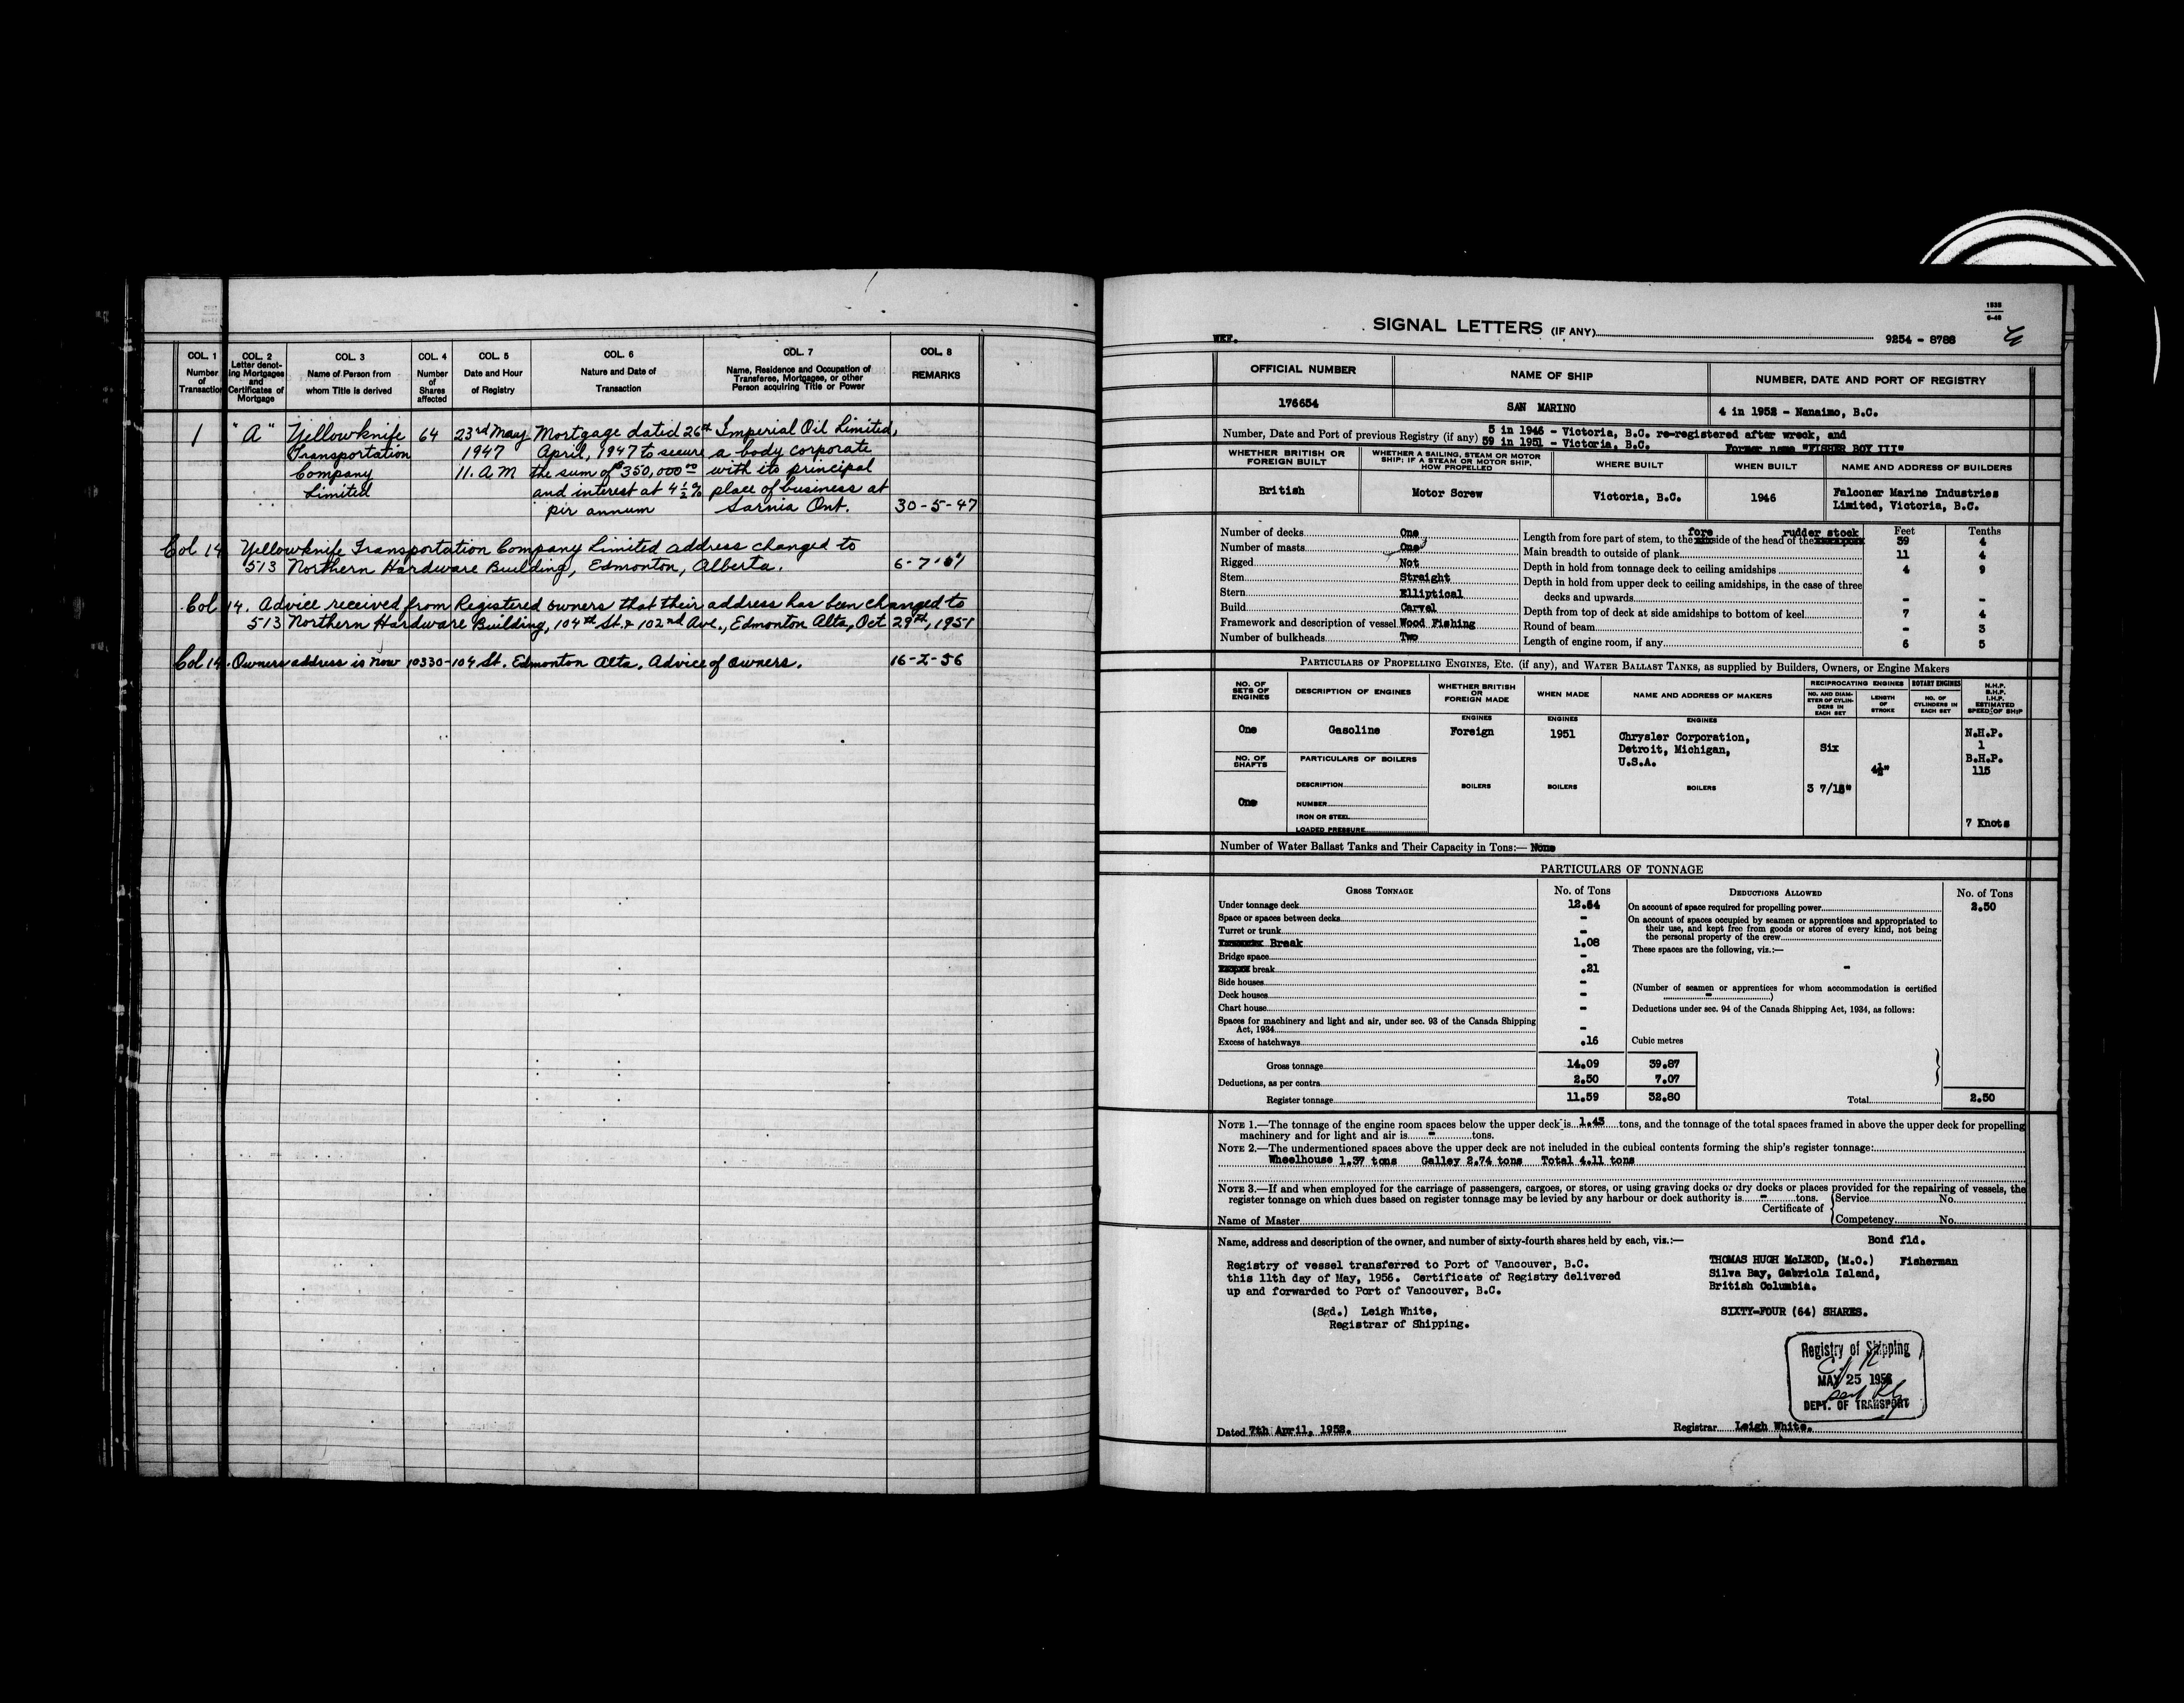 COL. 1 Number of Transaction
COL. 2 Letter denoting Mortgages and Certificates of Mortgage
COL. 3 Name of Person from whom Title is derived
COL. 4 Number of Shares affected
COL. 5 Date and Hour of Registry
COL. 6 Nature and Date of Transaction
COL. 7 Name, Residence and Occupation of Transferee, Mortgagee, or other Person acquiring Title or Power
COL. 8 REMARKS
1 "A" Yellowknife 64 23rd May Mortgage dated 26th Imperial Oil Limited,
Transportation 1947 April, 1947 to secure a body corporate
Company 11. A M the sum of $350,000.00 with its principal
Limited and interest at 4 1/2 % place of business at
per annum Sarnia Ont. 30-5-47
Col 14 Yellowknife Transportation Company Limited address changed to
513 Northern Hardware Building, Edmonton, Alberta. 6-7-
Col 14. Advice received from Registered owners that their address has been changed to
513 Northern Hardware Building, 104th St. & 102nd Ave., Edmonton Alta, Oct 29th, 1951
Col 14. Owners address is now 10330-104 St. Edmonton Alta. Advice of owners. 16-2-56
1538
6-48
SIGNAL LETTERS (IF ANY)
WEF. 9254 - 8788
OFFICIAL NUMBER NAME OF SHIP NUMBER, DATE AND PORT OF REGISTRY
176654 SAN MARINO 4 in 1952 - Nanaimo, B.C.
5 in 1946 - Victoria, B.C. re-registered after wreck, and
Number, Date and Port of previous Registry (if any) 59 in 1951 - Victoria, B.C. Former name "FISHER BOY III"
WHETHER BRITISH OR FOREIGN BUILT
WHETHER A SAILING, STEAM OR MOTOR SHIP; IF A STEAM OR MOTOR SHIP, HOW PROPELLED
WHERE BUILT WHEN BUILT NAME AND ADDRESS OF BUILDERS
British Motor Screw Victoria, B.C. 1946 Falconer Marine Industries
Limited, Victoria, B.C.
Number of decks One
Number of masts One
Rigged Not
Stem Straight
Stern Elliptical
Build Carvel
Framework and description of vessel Wood Fishing
Number of bulkheads Two
Feet Tenths
fore rudder stock
Length from fore part of stem, to the side of the head of the 39 4
Main breadth to outside of plank 11 4
Depth in hold from tonnage deck to ceiling amidships 4 9
Depth in hold from upper deck to ceiling amidships, in the case of three
decks and upwards - -
Depth from top of deck at side amidships to bottom of keel 7 4
Round of beam - 3
Length of engine room, if any 6 5
PARTICULARS OF PROPELLING ENGINES, ETC. (if any), and WATER BALLAST TANKS, as supplied by Builders, Owners, or Engine Makers
NO. OF SETS OF ENGINES
DESCRIPTION OF ENGINES
WHETHER BRITISH OR FOREIGN MADE
WHEN MADE
NAME AND ADDRESS OF MAKERS
RECIPROCATING ENGINES
NO. AND DIAMETER OF CYLINDERS IN EACH SET
LENGTH OF STROKE
ROTARY ENGINES
NO. OF CYLINDERS IN EACH SET
N.H.P. B.H.P. I.H.P. ESTIMATED SPEED OF SHIP
ENGINES ENGINES ENGINES
One Gasoline Foreign 1951 Chrysler Corporation,
Detroit, Michigan,
U.S.A.
Six
4½"
3 7/16"
N.H.P.
1
B.H.P.
115
7 Knots
NO. OF SHAFTS
One
PARTICULARS OF BOILERS
DESCRIPTION BOILERS BOILERS BOILERS
NUMBER
IRON OR STEEL
LOADED PRESSURE
Number of Water Ballast Tanks and Their Capacity in Tons:— None
PARTICULARS OF TONNAGE
GROSS TONNAGE No. of Tons DEDUCTIONS ALLOWED No. of Tons
Under tonnage deck 12.64
Space or spaces between decks -
Turret or trunk -
Break 1.08
Bridge space -
break .21
Side houses -
Deck houses -
Chart house -
Spaces for machinery and light and air, under sec. 93 of the Canada Shipping
Act, 1934 -
Excess of hatchways .16 Cubic metres
Gross tonnage 14.09 39.87
Deductions, as per contra 2.50 7.07
Register tonnage 11.59 32.80
On account of space required for propelling power 2.50
On account of spaces occupied by seamen or apprentices and appropriated to
their use, and kept free from goods or stores of every kind, not being
the personal property of the crew
These spaces are the following, viz.:—
-
(Number of seamen or apprentices for whom accommodation is certified
- )
Deductions under sec. 94 of the Canada Shipping Act, 1934, as follows:
Total 2.50
NOTE 1.—The tonnage of the engine room spaces below the upper deck is 1.43 tons, and the tonnage of the total spaces framed in above the upper deck for propelling
machinery and for light and air is - tons.
NOTE 2.—The undermentioned spaces above the upper deck are not included in the cubical contents forming the ship's register tonnage:
Wheelhouse 1.37 tons Galley 2.74 tons Total 4.11 tons
NOTE 3.—If and when employed for the carriage of passengers, cargoes, or stores, or using graving docks or dry docks or places provided for the repairing of vessels, the
register tonnage on which dues based on register tonnage may be levied by any harbour or dock authority is - tons.
Certificate of
Service No.
Competency No.
Name of Master
Name, address and description of the owner, and number of sixty-fourth shares held by each, viz.:— Bond fld.
Registry of vessel transferred to Port of Vancouver, B.C.
this 11th day of May, 1956. Certificate of Registry delivered
up and forwarded to Port of Vancouver, B.C.
(Sgd.) Leigh White,
Registrar of Shipping.
THOMAS HUGH McLEOD, (M.O.) Fisherman
Silva Bay, Gabriola Island,
British Columbia.
SIXTY-FOUR (64) SHARES.
Registry of Shipping
MAY 25 1956
DEPT. OF TRANSPORT
Dated 7th April, 1952. Registrar Leigh White.